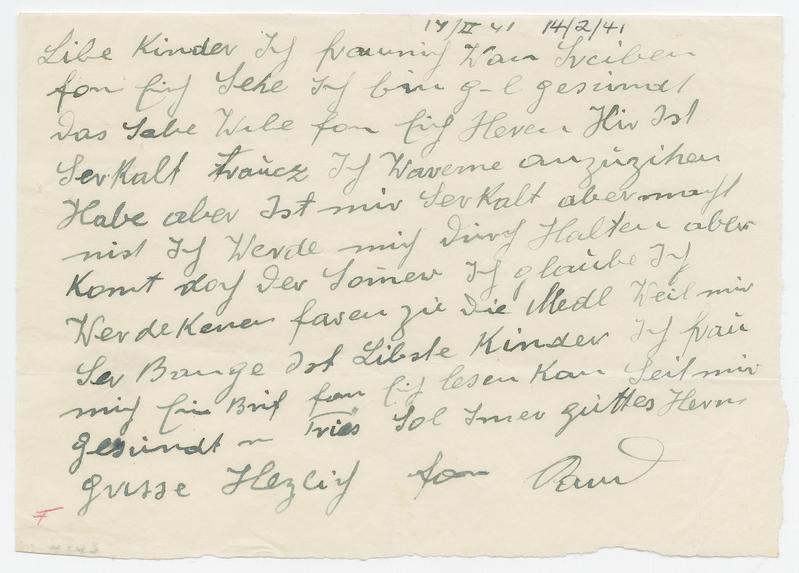 14/II 41 14/2/41
Libe Kinder Ich frau mich Wan Sreiben
fon Eich Sehe Ich bin g-l gesundt
Das Selbe Wele fon Eich Heren Hir Ist
Ser Kalt Ich Waveme anzuzihen
Habe aber Ist mir Ser Kalt aber macht
nist Ich Werde mich Durch Halten aber
Komt doch Der Somer Ich glaube Ich
Werde Kenen faren zu Die Medl Weil mir
Ser Bange Ist Libste Kinder Ich frau
mich Ein Brif fon Eich lesen Kan Seit mir
gesundt n Sol Imer guttes Heren
grusse Hezlich fon
F